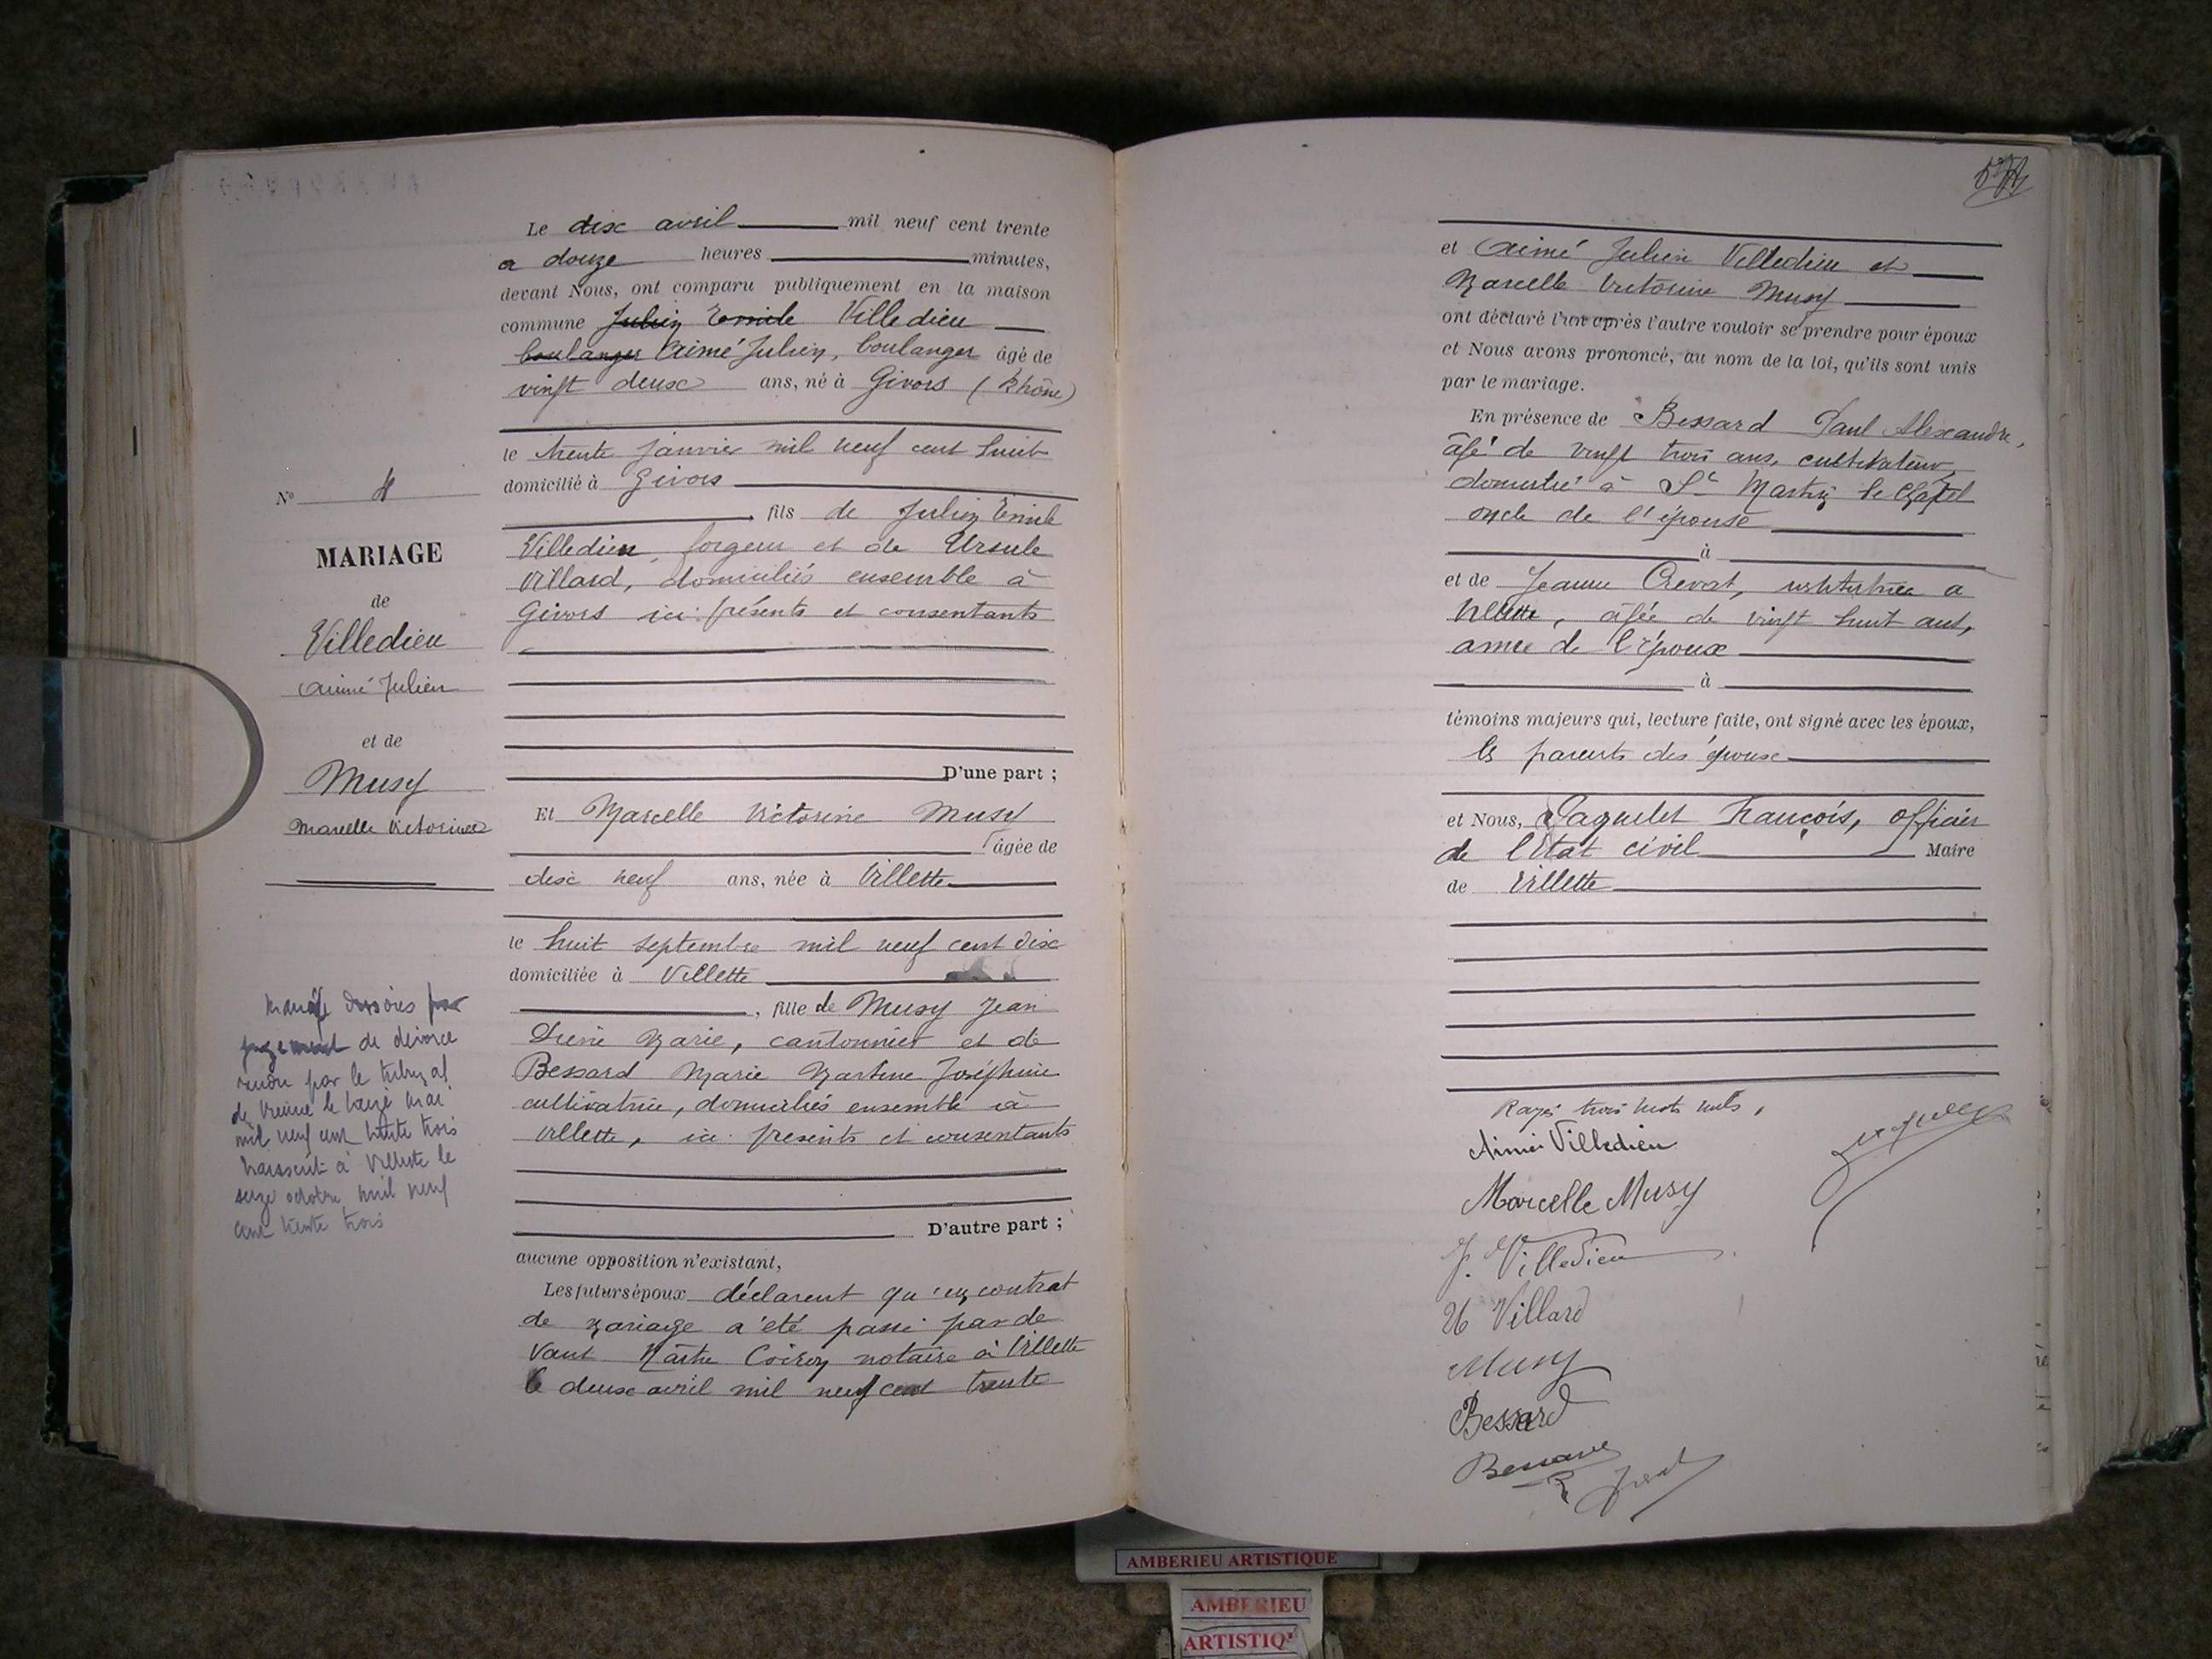 Le dix avril mil neuf cent trente
a douze heures minutes,
devant Nous, ont comparu publiquement en la maison
commune Julien Emile Villedieu
boulanger Aimé Julien, boulanger âgé de
vingt deux ans, né à Givors (Rhône)
le trente janvier mil neuf cent huit
domicilié à Givors
, fils de Julien Emile
Villedieu, forgeur et de Ursule
Villard, domiciliés ensemble à
Givors ici présents et consentants
D'une part ;
Et Marcelle Victorine Musy
âgée de
dix neuf ans, née à Villette
le huit septembre mil neuf cent dix
domiciliée à Villette
, fille de Musy Jean
Marie, cantonnier et de
Bessard Marie Josephine
cultivatrice, domiciliés ensemble à
Villette, ici présents et consentants
D'autre part ;
aucune opposition n'existant,
Les futurs époux déclarent qu'un contrat
de mariage a été passé par de
vant Maître notaire à Villette
le deux avril mil neuf cent trente
No 4
MARIAGE
de
Villedieu
Aimé Julien
et de
Musy
Marcelle Victorine
Mariage dissous par
jugement de divorce
rendu par le tribunal
de Vienne le mai
mil neuf cent trente trois
Transcrit à Villette le
seize octobre mil neuf
cent trente trois
et Aimé Julien Villedieu et
Marcelle Victorine Musy
ont déclaré l'un après l'autre vouloir se prendre pour époux
et Nous avons prononcé, au nom de la loi, qu'ils sont unis
par le mariage.
En présence de Bessard Paul Alexandre,
âgé de vingt trois ans, cultivateur,
domicilié à St Martin le Chatel
oncle de l'épouse
à
et de Jeanne Crevat, institutrice a
Villette, âgée de vingt huit ans,
amie de l'époux
à
témoins majeurs qui, lecture faite, ont signé avec les époux,
les parents des épouse
et Nous, Paquelet François, officier
de l'Etat civil Maire
de Villette
Rayé trois mots nuls,
Aimé Villedieu
Marcelle Musy
J. Villedieu
U Villard
Musy
Bessard
AMBERIEU ARTISTIQUE
AMBERIEU
ARTISTIQ